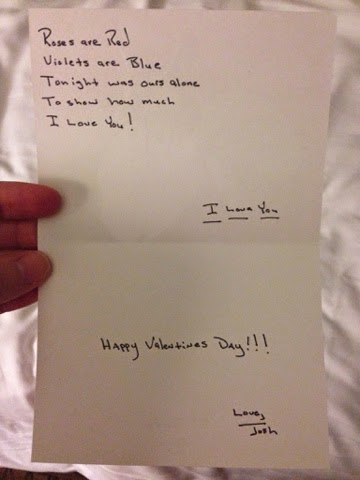 Roses are Red
Violets are Blue
Tonight was ours alone
To show how much
I Love You!
I Love You
Happy Valentines Day!!!
Love,
Josh